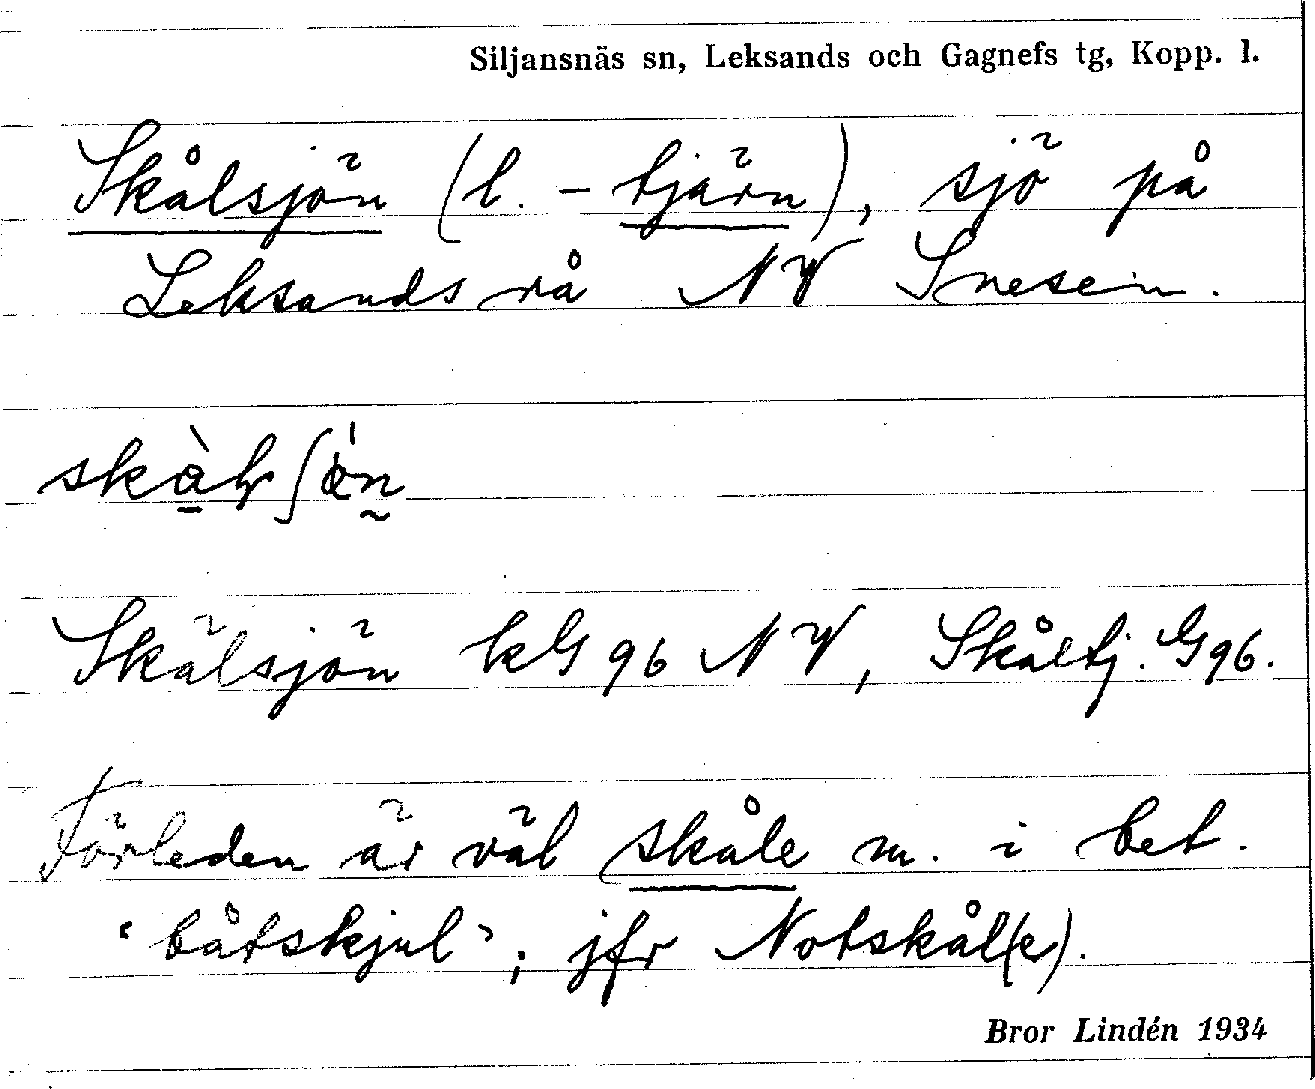 Siljansnäs sn, Leksands och Gagnefs tg, Kopp. l.
Skålsjön (l. -tjärn), sjö på
Leksands rå NV Snesen.
Skålsjön kG 96 NV, Skåltj. G96.
Förleden är väl skåle m. i bet.
'båtskjul'; jfr Notskål(e).
Bror Lindén 1934